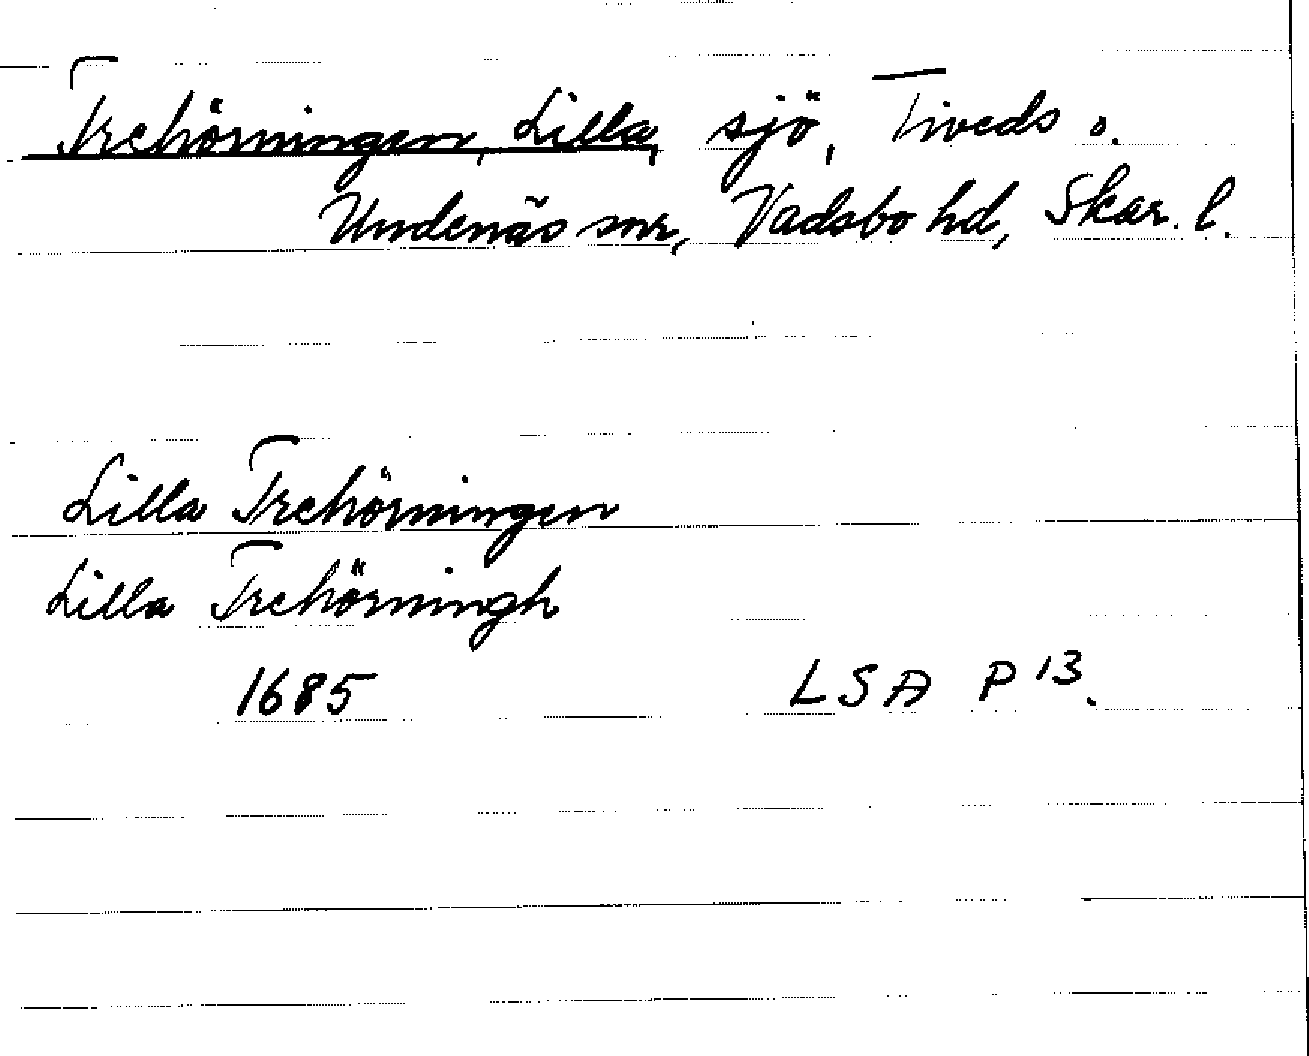 Trehörningen, Lilla, sjö, Tiveds o.
Undenäs snr, Vadsbo hd, Skar. l.
Lilla Trehörningen
Lilla Trehörningh
1685 LSA P 13.